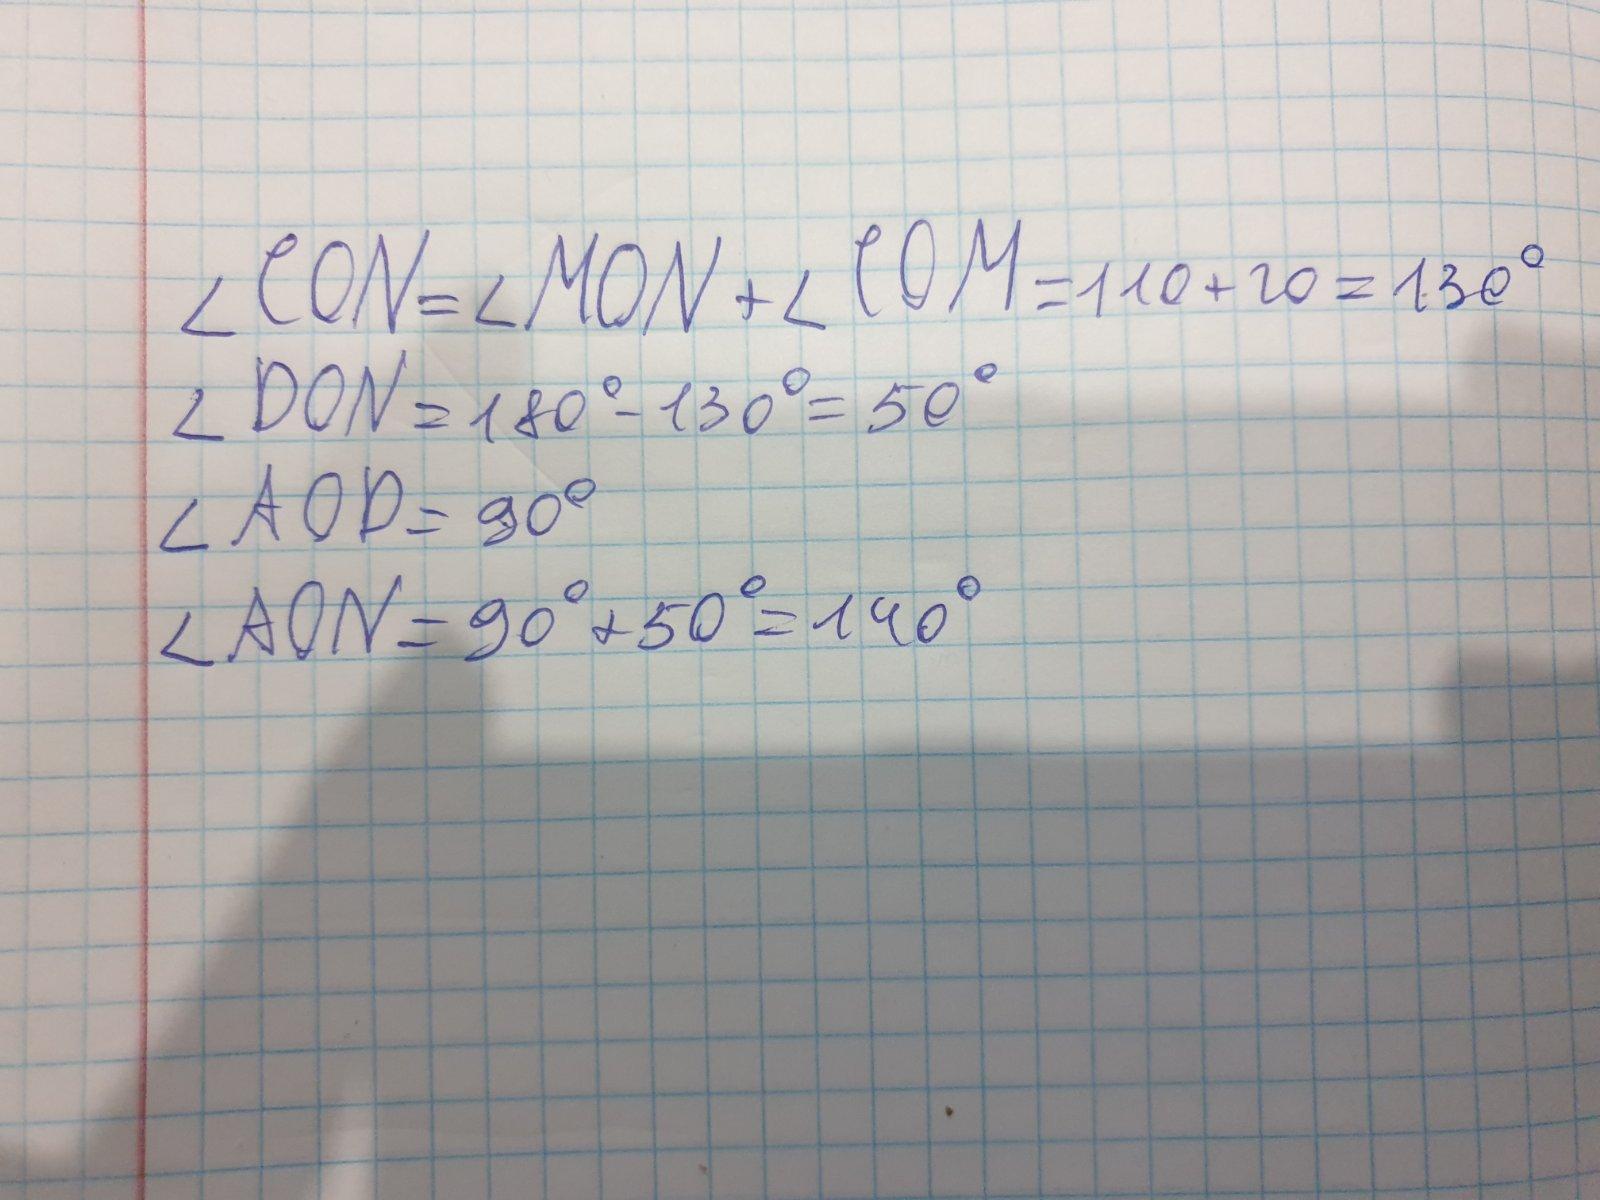 ∠CON=∠MON+∠COM=110+20=130°
∠DON=180°-130°=50°
∠AOD=90°
∠AON=90°+50°=140°